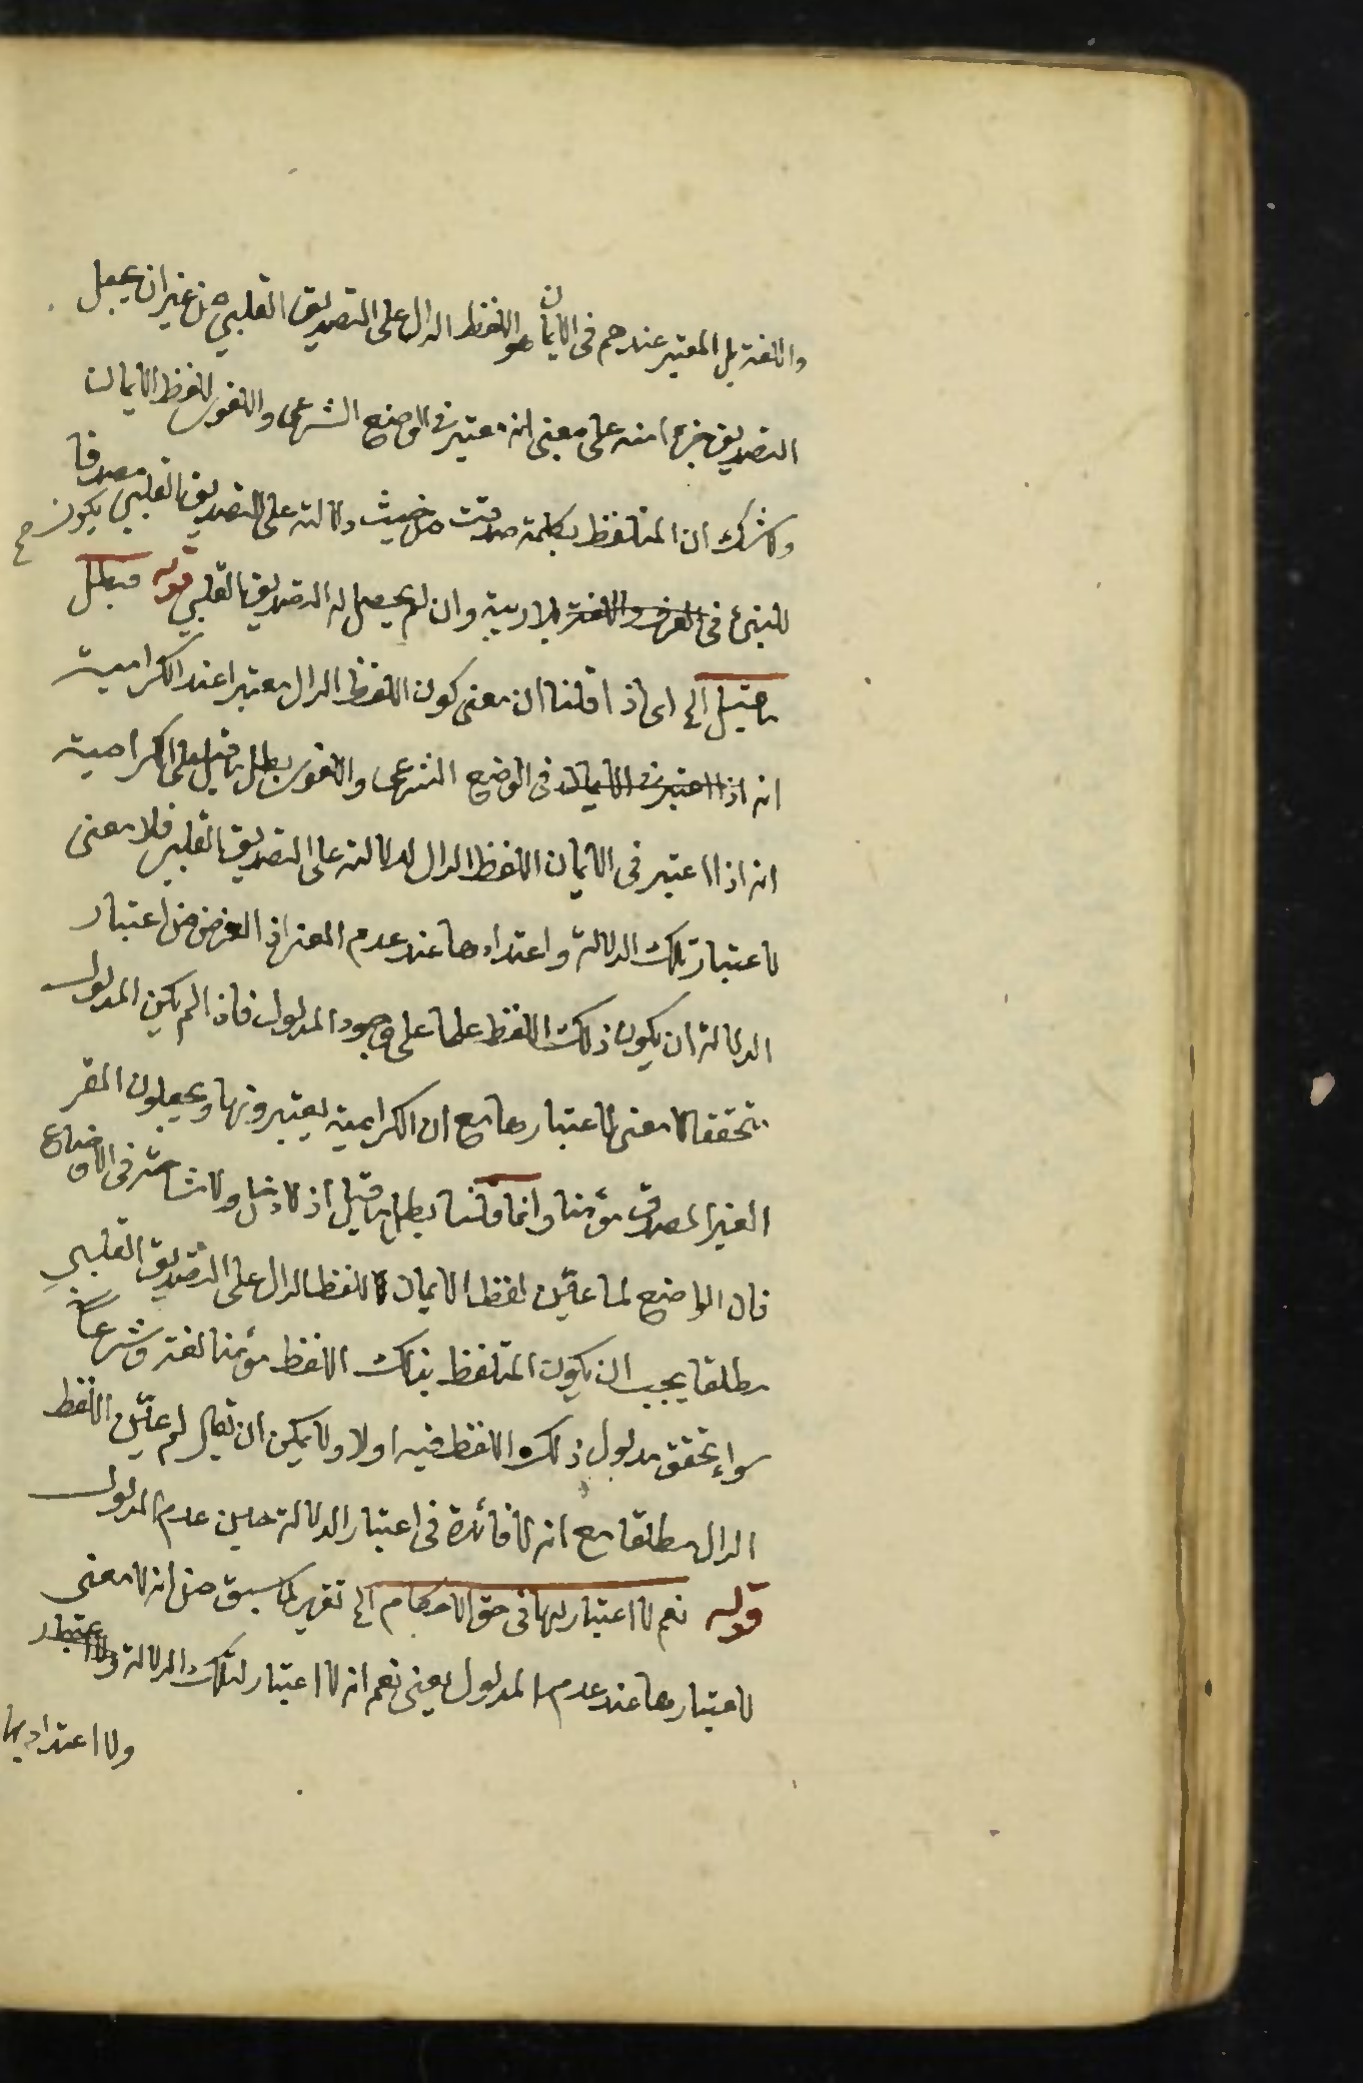 واللغة بل المعتبر عندهم في الايمان هو اللفظ الدال على التصديق القلبي من غير ان يجعل
التصديق جزءا منه على معنى انه معتبر في الوضع الشرعي واللغوي للفظ الايمان
ولا شك ان المتلفظ بكلمة صدقت من حيث دلالته على التصديق القلبي يكون مصدقا
للنبي ع م في العرف واللغة بلا ريبة وان لم يحصل له التصديق القلبي قوله فبطل
ما قيل الخ اى اذا قلنا ان معنى كون اللفظ الدال معتبرا عند الكرامية
انه اذا اعتبر في الايمان في الوضع الشرعي واللغوي بطل ما قيل على الكرامية
انه اذا اعتبر في الايمان اللفظ الدال لدلالته على التصديق القلبي فلا معنى
لاعتبار تلك الدلالة واعتدادها عند عدم المعنى اذ الغرض من اعتبار
الدلالة ان يكون ذلك اللفظ علما على وجود المدلول فاذا لم يكن المدلول
متحققا لا معنى لاعتبارها مع ان الكرامية يعتبرونها ويجعلون المقر
الغير المصدق مؤمنا وانما قلنا بطل ما قيل اذ لا دخل ولا مشاحة في الاوضاع
فان الواضع لما عيّن لفظ الايمان للفظ الدال على التصديق القلبي
مطلقا يجب ان يكون المتلفظ بذلك اللفظ مؤمنا لغة وشرعاً
سواء تحقق مدلول ذلك اللفظ فيه اولا ولا يمكن ان يقال لم عيّن اللفظ
الدال مطلقا مع انه لا فائدة في اعتبار الدلالة حين عدم المدلول
قوله نعم لا اعتبار لها في حق الاحكام الخ تقرير لما سبق من انه لا معنى
لاعتبارها عند عدم المدلول يعنى نعم انه لا اعتبار لتلك الدلالة ولا اعتبار
ولا اعتداد بها